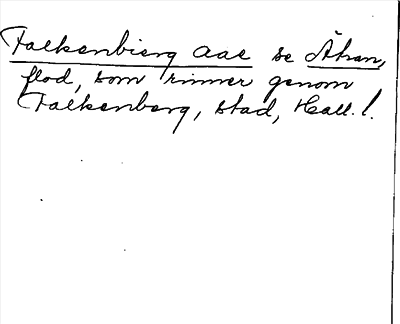 Falkenbierg aae se Ätran,
flod, som rinner genom
Falkenberg, stad, Hall. l.